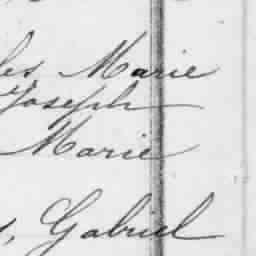 les Marie
Joseph
Marie
, Gabriel